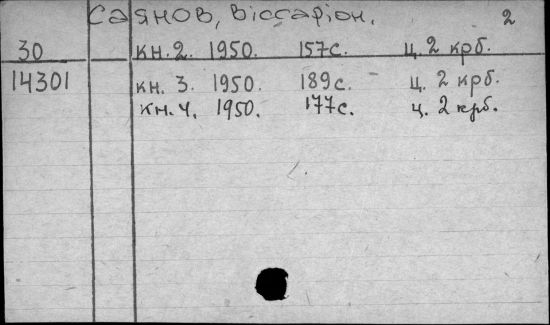 Саянов, Віссаріон. 2
30 кн. 2. 1950. 157с. ц. 2 крб.
14301 кн. 3. 1950. 189с. ц. 2 крб.
кн. 4. 1950. 177с. ц. 2 крб.